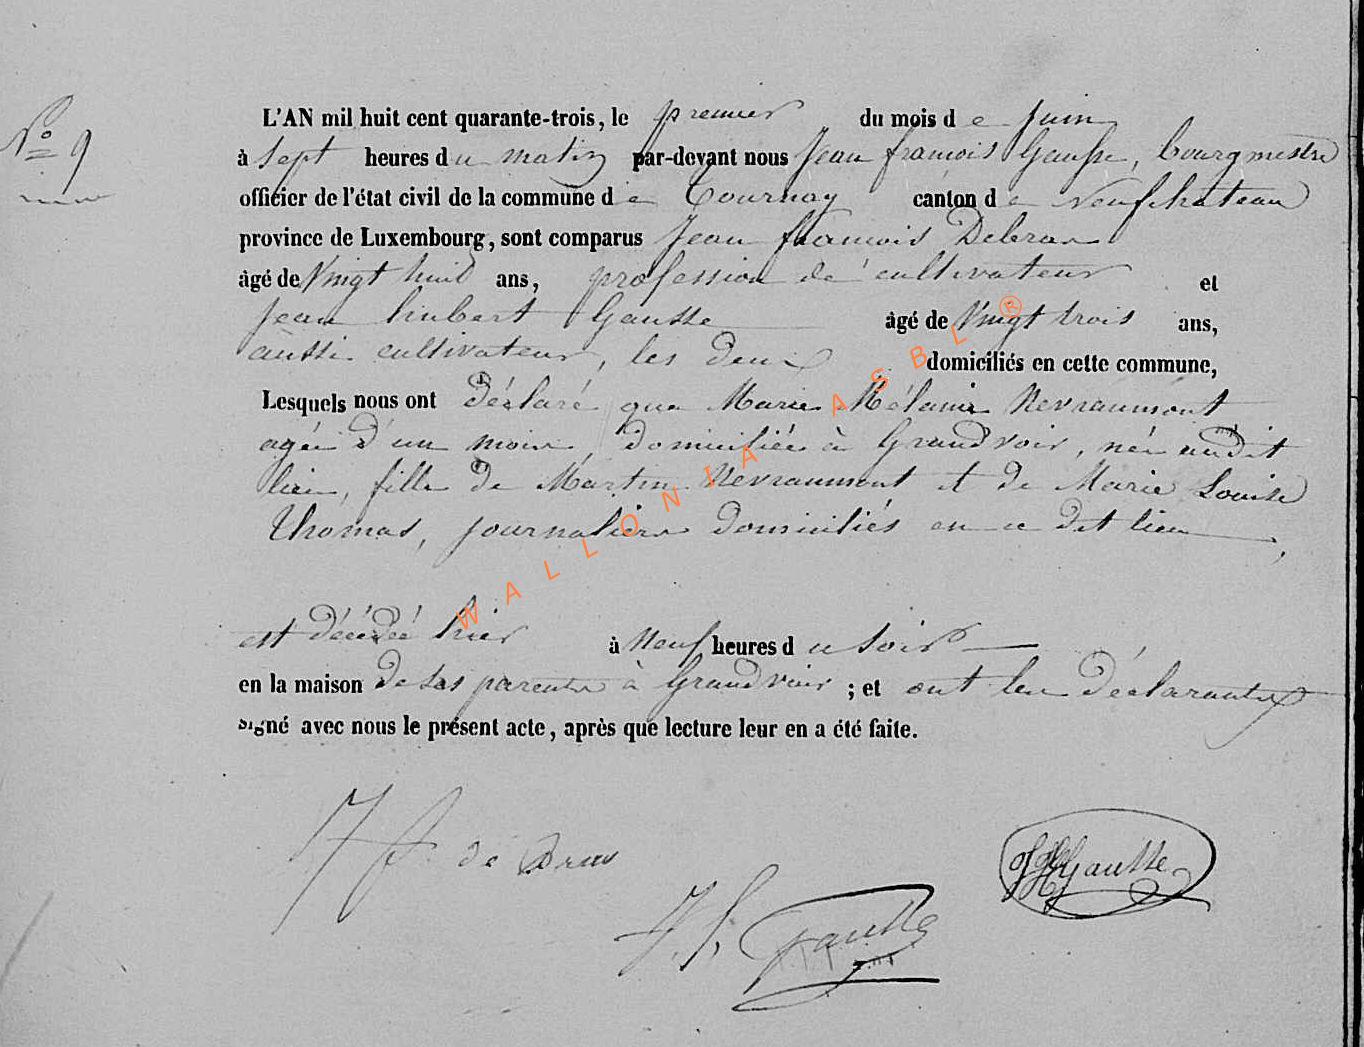 N° 9
L'AN mil huit cent quarante-trois, le premier du mois de Juin
à sept heures du matin par-devant nous Jean francois Gausse, bourgmestre
officier de l'état civil de la commune de Tournay canton de Neufchateau
province de Luxembourg, sont comparus Jean francois Debras
âgé de Vingt huit ans, profession de cultivateur et
Jean hubert Gausse âgé de Vingt trois ans,
aussi cultivateur, les deux domiciliés en cette commune,
Lesquels nous ont déclaré que Marie Mélanie Nevraumont
agée d'un mois, domiciliée à Grandvoir, née audit
lieu, fille de Martin Nevraumont et de Marie Louise
Thomas, journaliers domiciliés en ce dit lieu,
est décédée hier à Neuf heures du soir
en la maison de ses parents à Grandvoir ; et ont les déclarants
signé avec nous le présent acte, après que lecture leur en a été faite.
J f de Bras
JH Gausse
J. f. Gausse
WALLONIA ASBL ®